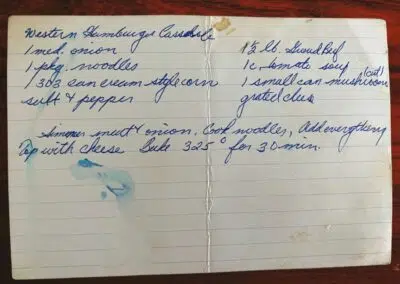 Western Hamburger Casserole
1 med. onion 1½ lb. Ground Beef
1 pkg. noodles 1 c. tomato soup
1 303 can cream style corn 1 small can mushroom (cut)
salt & pepper grated chee
simmer meat & onion. Cook noodles, Add everything
Top with cheese Bake 325° for 30 min.